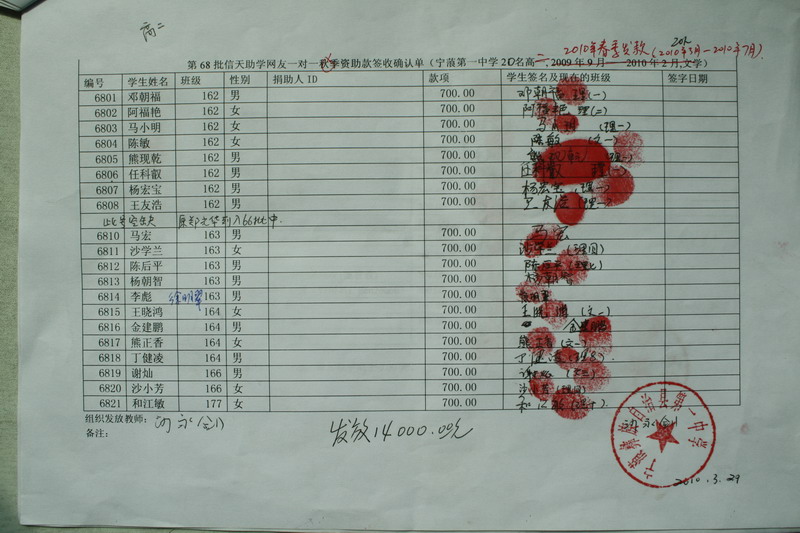 高二
2010年春季发放(2010年3月-2010年7月)
20人
第 68 批信天助学网友一对一秋季资助款签收确认单（宁蒗第一中学 20名高二,2009 年 9 月——2010 年 2 月,文学）
编号 学生姓名 班级 性别 捐助人 ID 款项 学生签名及现在的班级 签字日期
6801 邓朝福 162 男 700.00 邓朝福 理(一)
6802 阿福艳 162 女 700.00 阿福艳 理(二)
6803 马小明 162 男 700.00 马小明 (理一)
6804 陈敏 162 女 700.00 陈敏 (文一)
6805 熊现乾 162 男 700.00 熊现乾 (理一)
6806 任科叡 162 男 700.00 任科叡 理(一)
6807 杨宏宝 162 男 700.00 杨宏宝 (理一)
6808 王友浩 162 男 700.00 王友浩 (理一)
此号空缺 原郑 入66批中.
6810 马宏 163 男 700.00 马宏
6811 沙学兰 163 女 700.00 沙学兰 (理四)
6812 陈后平 163 男 700.00 陈后平 (理七)
6813 杨朝智 163 男 700.00 杨朝智
6814 李彪 徐明翠 163 男 700.00 徐明翠
6815 王晓鸿 164 女 700.00 王晓鸿 (文二)
6816 金建鹏 164 男 700.00 金建鹏
6817 熊正香 164 女 700.00 熊正香 (文二)
6818 丁健凌 164 男 700.00 丁健凌
6819 谢灿 166 男 700.00 谢灿 (文三)
6820 沙小芳 166 女 700.00 沙小芳 (理四)
6821 和江敏 177 女 700.00 和江敏
组织发放教师:
备注:
发放14000.00元
2010.3.29